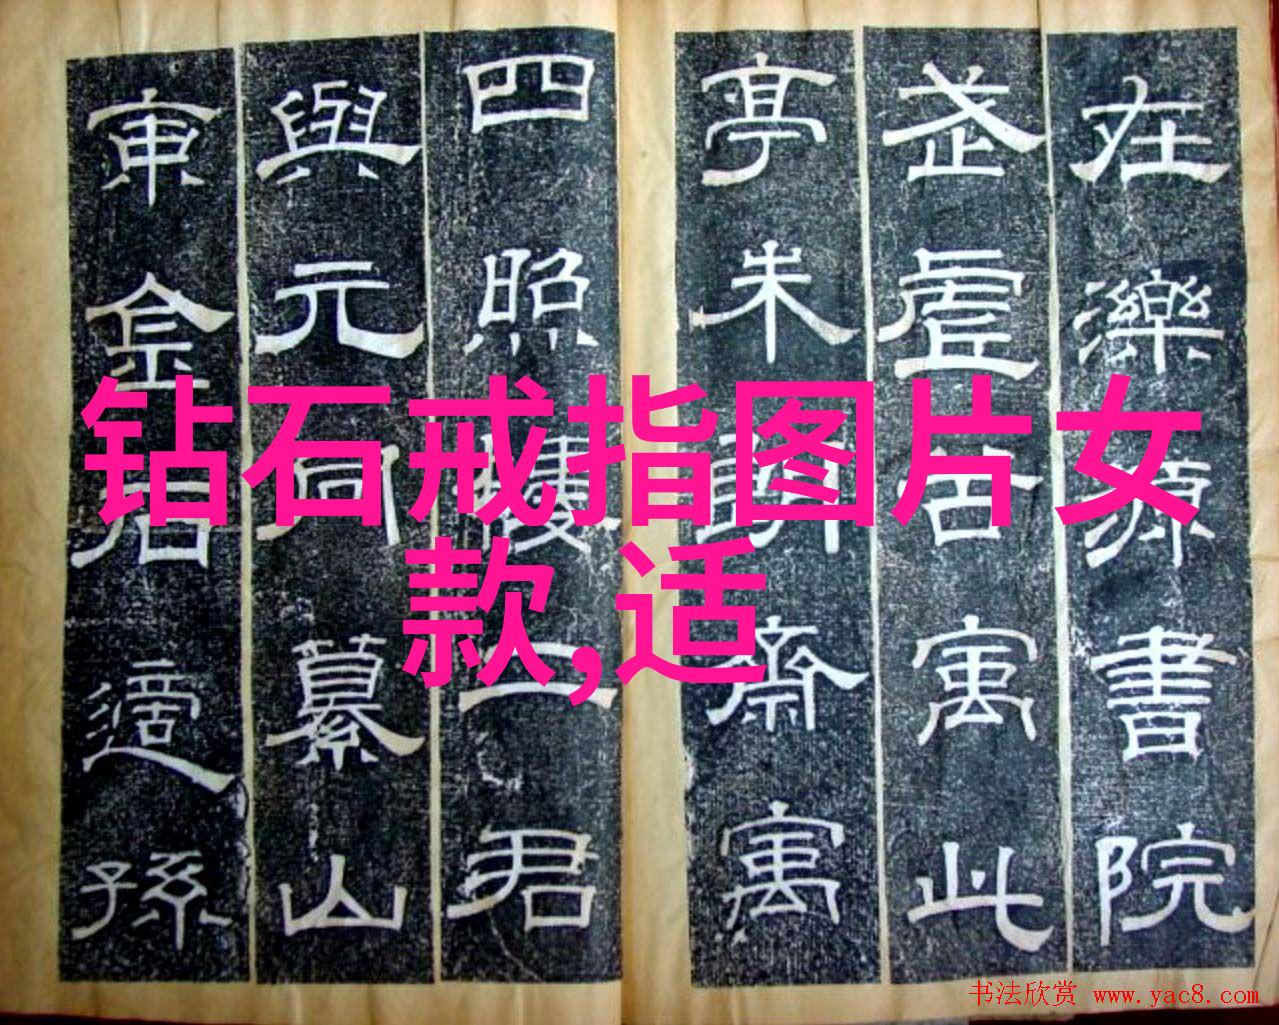 在濼源書院
武虛谷寓此
亭朱朗齋寓
四照樓二君
與元同纂山
東金石適孫
钻石戒指图片女
款,适
书法欣赏 www.yac8.com